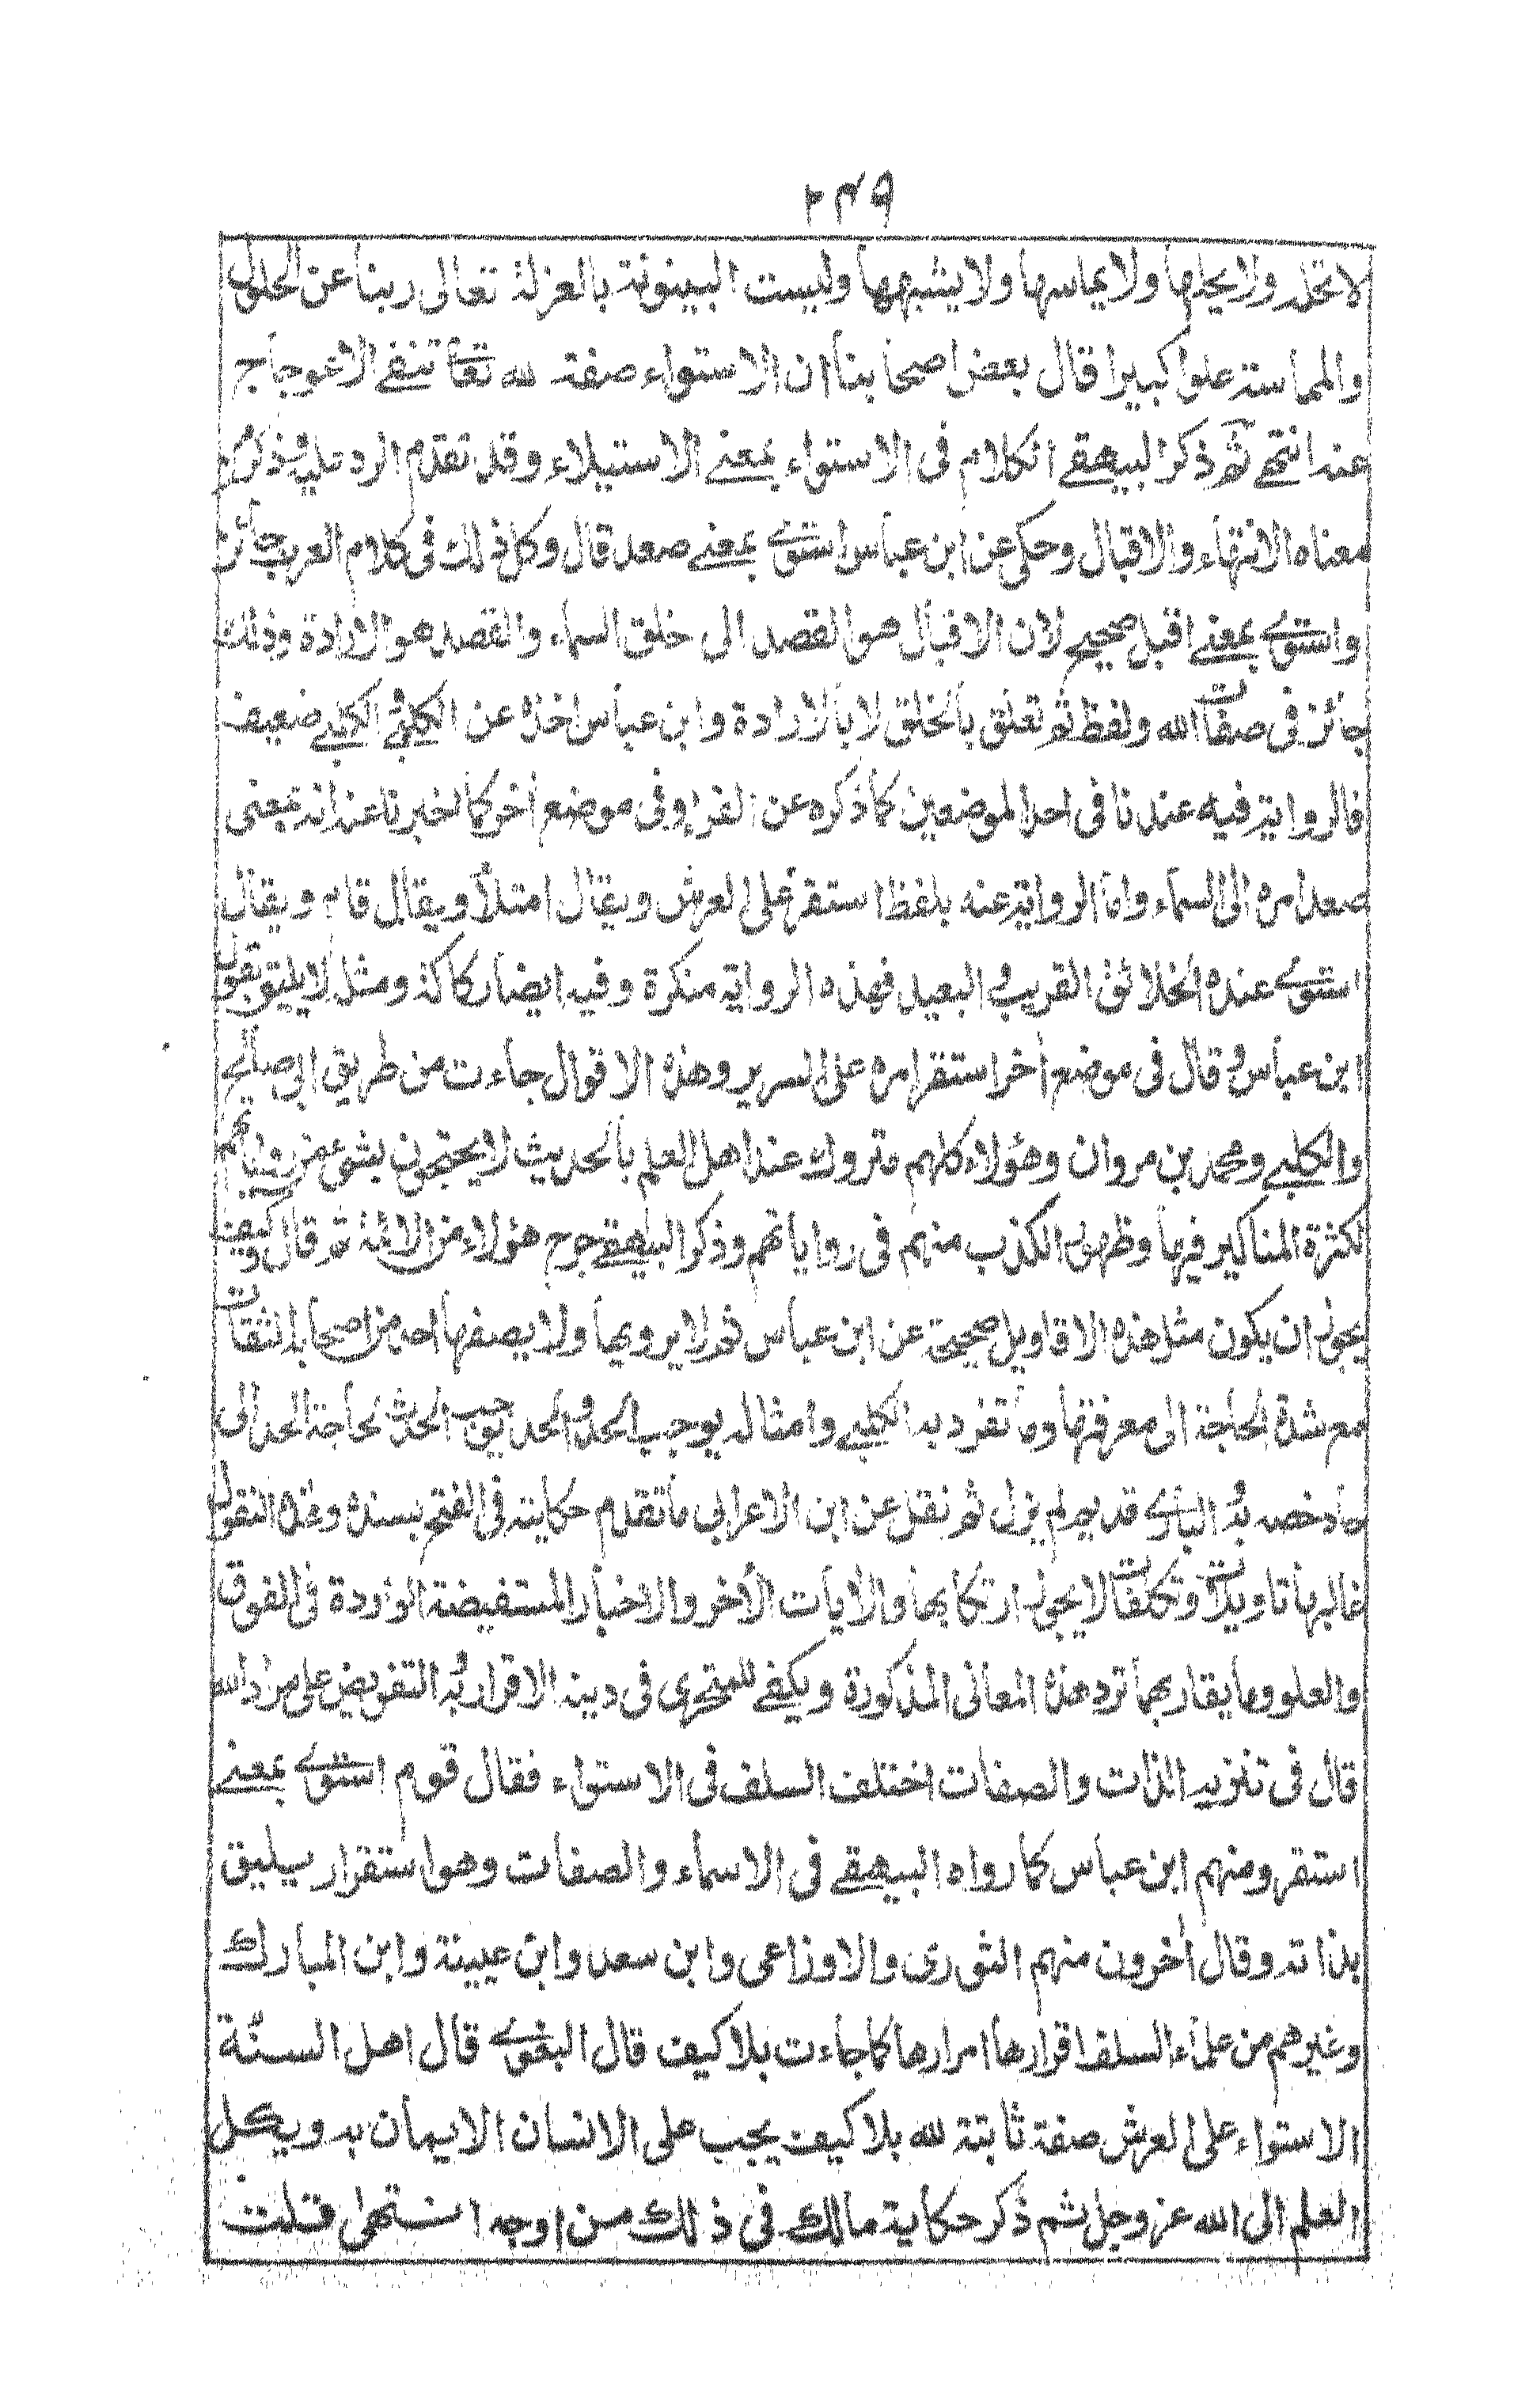 ٢٤٩
لا تحله ولا يحلها ولا يماسها ولا يشبهها وليست البينونة بالعزلة تعالى ربنا عن الحلول
والمماسة علوا كبيرا قال بعض اصحابنا ان الاستواء صفة لله تعا تنفے الاعوجاج
عنه انتهے ثم ذكر البيهقے الكلام فى الاستواء بمعنے الاستيلاء وقد تقدم الرد عليه وذكر
معناه الانتهاء والاقبال وحكى عن ابن عباس استوے بمعنے صعد قال وكل ذلك فى كلام العرب جائز
واستوے بمعنے اقبل صحيح لان الاقبال هو القصد الى خلق السماء والقصد هو الارادة وذلك
جائز فى صفات الله ولفظ ثم تعلق بالخلق لا بالارادة وابن عباس اخذه عن الكلبے والكلبے ضعيف
فالرواية فيه عندنا فى احد الموضعين كما ذكره عن الفراء وفى موضع اخر كما اخبرنا عنه انه بمعنى
صعد امره الى السماء واما الرواية عنه بلفظ استقر على العرش ويقال امتلأ ويقال قام ويقال
استوے عنده الخلائق القريب والبعيد فهذه الرواية منكرة وفيه ايضا ركاكة ومثله لا يليق بقول
ابن عباس وقال فى موضع اخر استقر امره على السرير وهذه الاقوال جاءت من طريق ابى صالح
والكلبے ومحمد بن مروان وهؤلاء كلهم متروك عند اهل العلم بالحديث لا يحتجون بشئ من رواياتهم
لكثرة المناكير فيها وظهور الكذب منهم فى رواياتهم وذكر البيهقے جرح هؤلاء من الائمة ثم قال وكيف
يجوز ان يكون مثل هذه الاقاويل صحيحة عن ابن عباس ثم لا يرويها ولا يصفها احد من اصحابه الثقات
مع شدة الحاجة الى معرفتها وما تفرد به الكلبے وامثاله يوجب الحد والحد يوجب الحدث لحاجة الحد الى
حاد خصه به والبارے قديم لم يزل ثم نقل عن ابن الاعرابي ما تقدم حكايته فى الفتح بسنده وهذه النقول
غالبها تاويلات وتكلفات لا يجوز ارتكابها والآيات الأخر والاخبار المستفيضة الواردة فى الفوق
والعلو وما يقاربهما ترد هذه المعانى المذكورة ويكفے للمتحرى فى دينه الاقرار به والتفويض على مراد الله
قال فى تنزيه الذات والصفات اختلف السلف فى الاستواء فقال قوم استوے بمعنے
استقر ومنهم ابن عباس كما رواه البيهقے فى الاسماء والصفات وهو استقرار يليق
بذاته وقال اخرون منهم الثورى والاوزاعى وابن سعد وابن عيينة وابن المبارك
وغيرهم من علماء السلف اقرارها امرارها كما جاءت بلا كيف قال البغوے قال اهل السنة
الاستواء على العرش صفة ثابتة لله بلا كيف يجب على الانسان الايمان به ويكل
العلم الى الله عز وجل ثم ذكر حكاية مالك فى ذلك من اوجه انتهى قلت